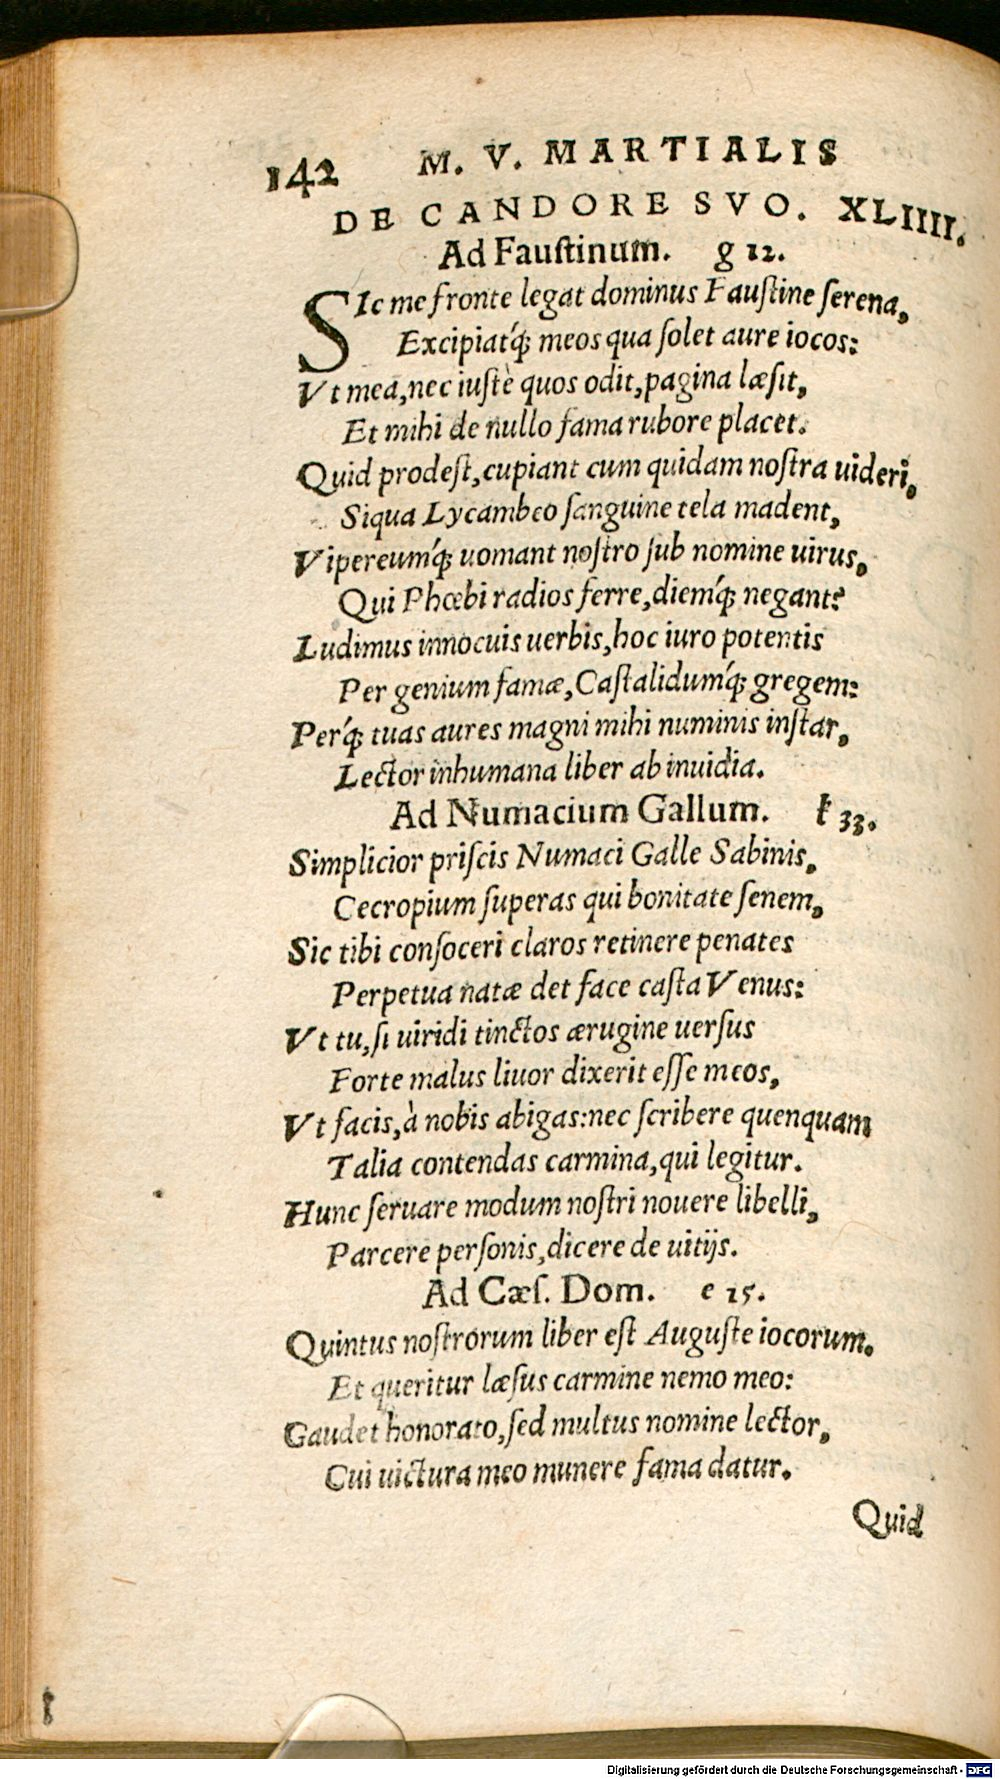 142 M. V. MARTIALIS
DE CANDORE SVO. XLIIII.
Ad Fauſtinum. g 12.
SIc me fronte legat dominus Fauſtine ſerena,
Excipiatq́; meos qua ſolet aure iocos:
Vt mea, nec iuſtè quos odit, pagina læſit,
Et mihi de nullo fama rubore placet.
Quid prodeſt, cupiant cum quidam noſtra uideri,
Siqua Lycambeo ſanguine tela madent,
Vipereumq́; uomant noſtro ſub nomine uirus,
Qui Phœbi radios ferre, diemq́; negant?
Ludimus innocuis uerbis, hoc iuro potentis
Per genium famæ, Caſtalidumq́; gregem:
Perq́; tuas aures magni mihi numinis inſtar,
Lector inhumana liber ab inuidia.
Ad Numacium Gallum. k 33.
Simplicior priſcis Numaci Galle Sabinis,
Cecropium ſuperas qui bonitate ſenem,
Sic tibi conſoceri claros retinere penates
Perpetua natæ det face caſta Venus:
Vt tu, ſi uiridi tinctos ærugine uerſus
Forte malus liuor dixerit eſſe meos,
Vt facis, à nobis abigas: nec ſcribere quenquam
Talia contendas carmina, qui legitur.
Hunc ſeruare modum noſtri nouere libelli,
Parcere perſonis, dicere de uitijs.
Ad Cæſ. Dom. e 15.
Quintus noſtrorum liber eſt Auguſte iocorum.
Et queritur læſus carmine nemo meo:
Gaudet honorato, ſed multus nomine lector,
Cui uictura meo munere fama datur.
Quid
Digitalisierung gefördert durch die Deutsche Forschungsgemeinschaft - DFG